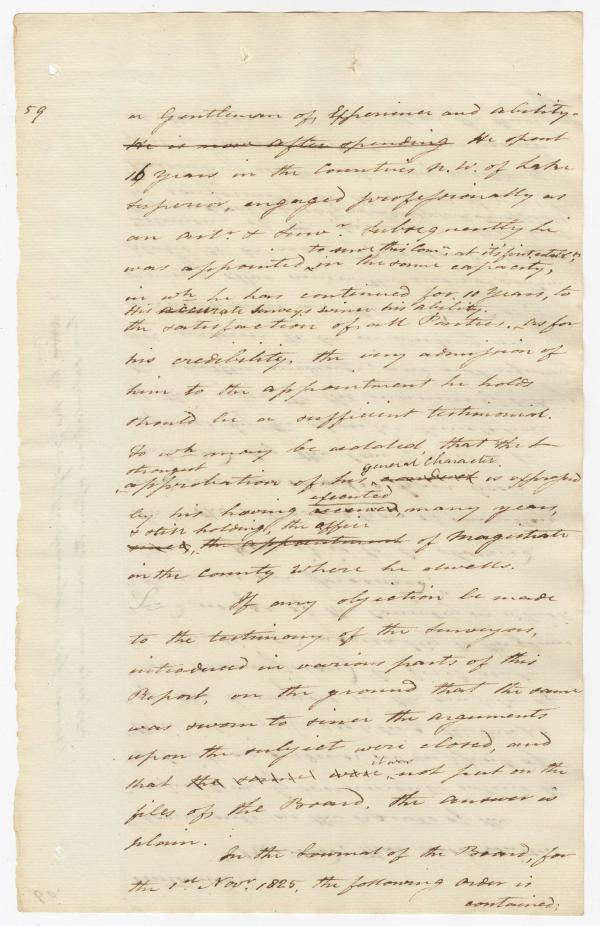 59
a Gentleman of Experience and ability.
He is now after spending He spent
16 Years in the Countries N. W. of Lake
Superior, engaged professionally as
an Astr. & Survr. Subsequently he
to serve this Comn. at its first establt.
was appointed in the same capacity,
in wh he has continued for 10 Years, to
His accurate Surveys evince his ability.
the satisfaction of all Parties. As for
his credibility, the very admission of
him to the appointment he holds
should be a sufficient testimonial.
To wh may be added, that the
strongest general Character
approbation of his conduct is expressed
executed
by his having received, many years,
& still holding, the office
since, the appointment of Magistrate
in the County where he dwells.
If any objection be made
to the testimony of the Surveyors,
introduced in various parts of this
Report, on the ground that the same
was sworn to since the arguments
upon the subject were closed, and
it was
that the same were not put on the
files of the Board, the answer is
plain.
In the Journal of the Board, for
the 1st Novr. 1825, the following order is
contained;